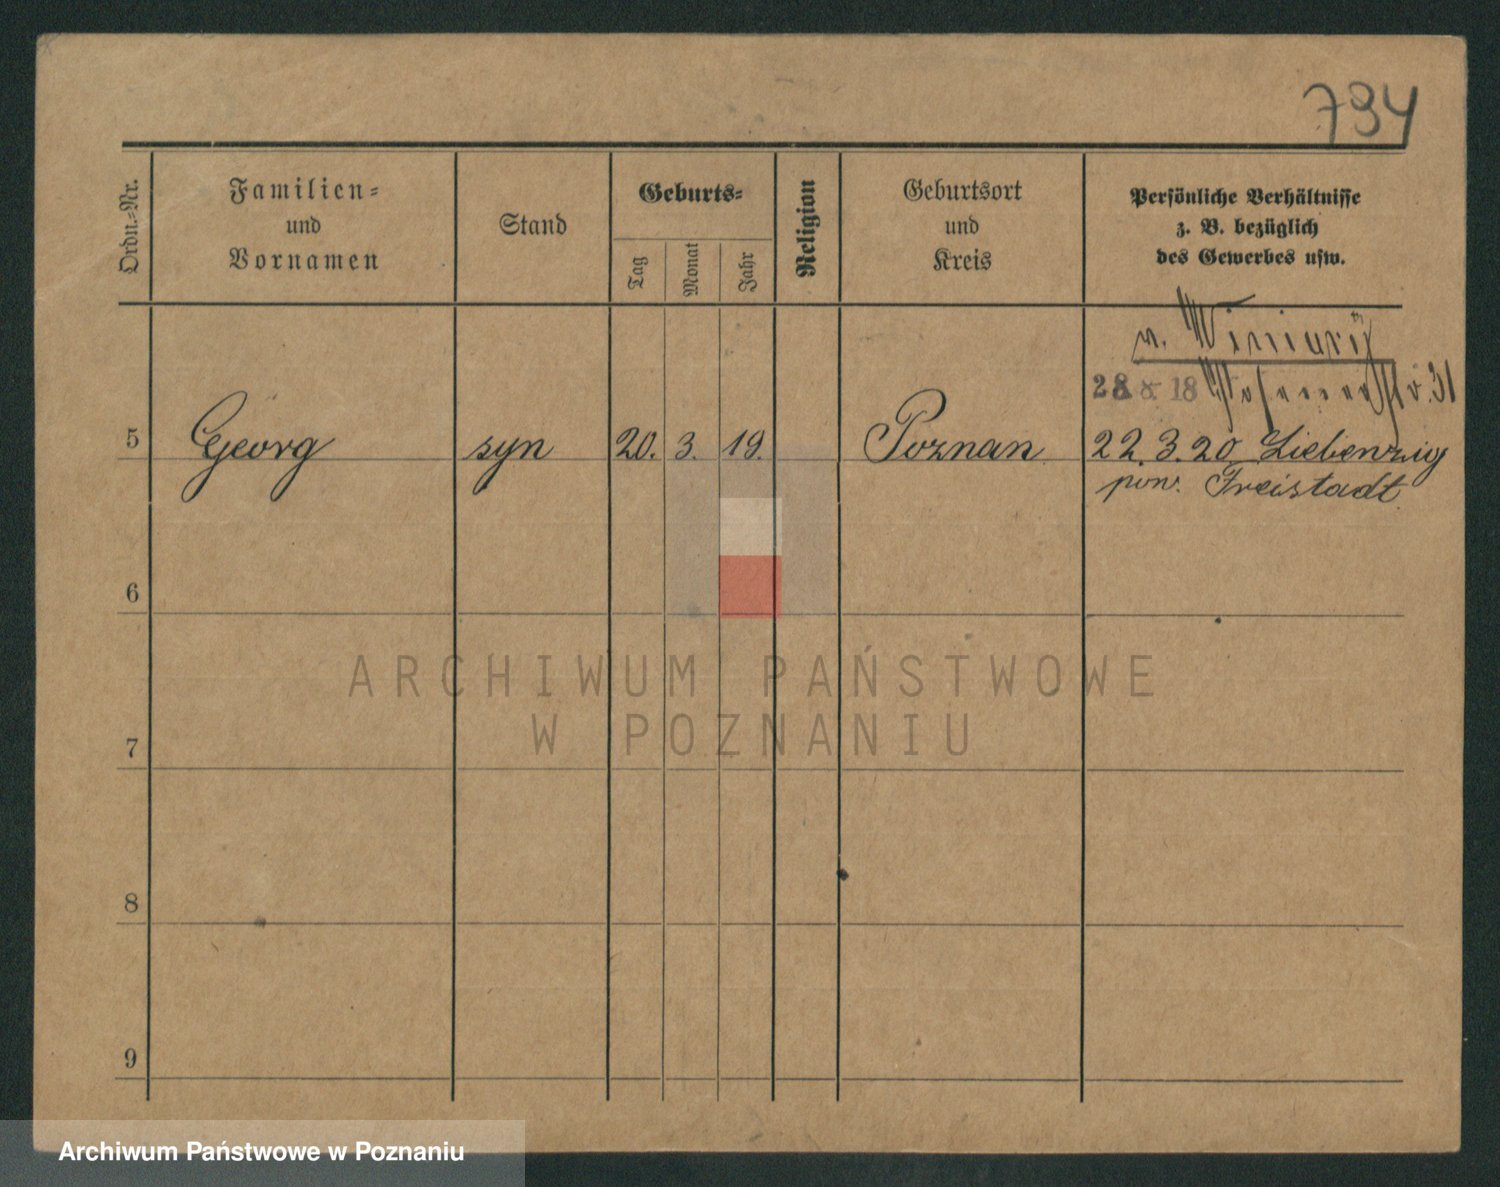 794
Ordn.=Nr.
Familien=
und
Vornamen
Stand
Geburts=
Tag
Monat
Jahr
Religion
Geburtsort
und
Kreis
Persönliche Verhältnisse
z. B. bezüglich
des Gewerbes usw.
v. Winiary
28 x 18
5 Georg syn 20. 3. 19. Poznan 22. 3. 20 Liebenzig
pow. Freistadt
6
7
8
9
ARCHIWUM PAŃSTWOWE
W POZNANIU
Archiwum Państwowe w Poznaniu